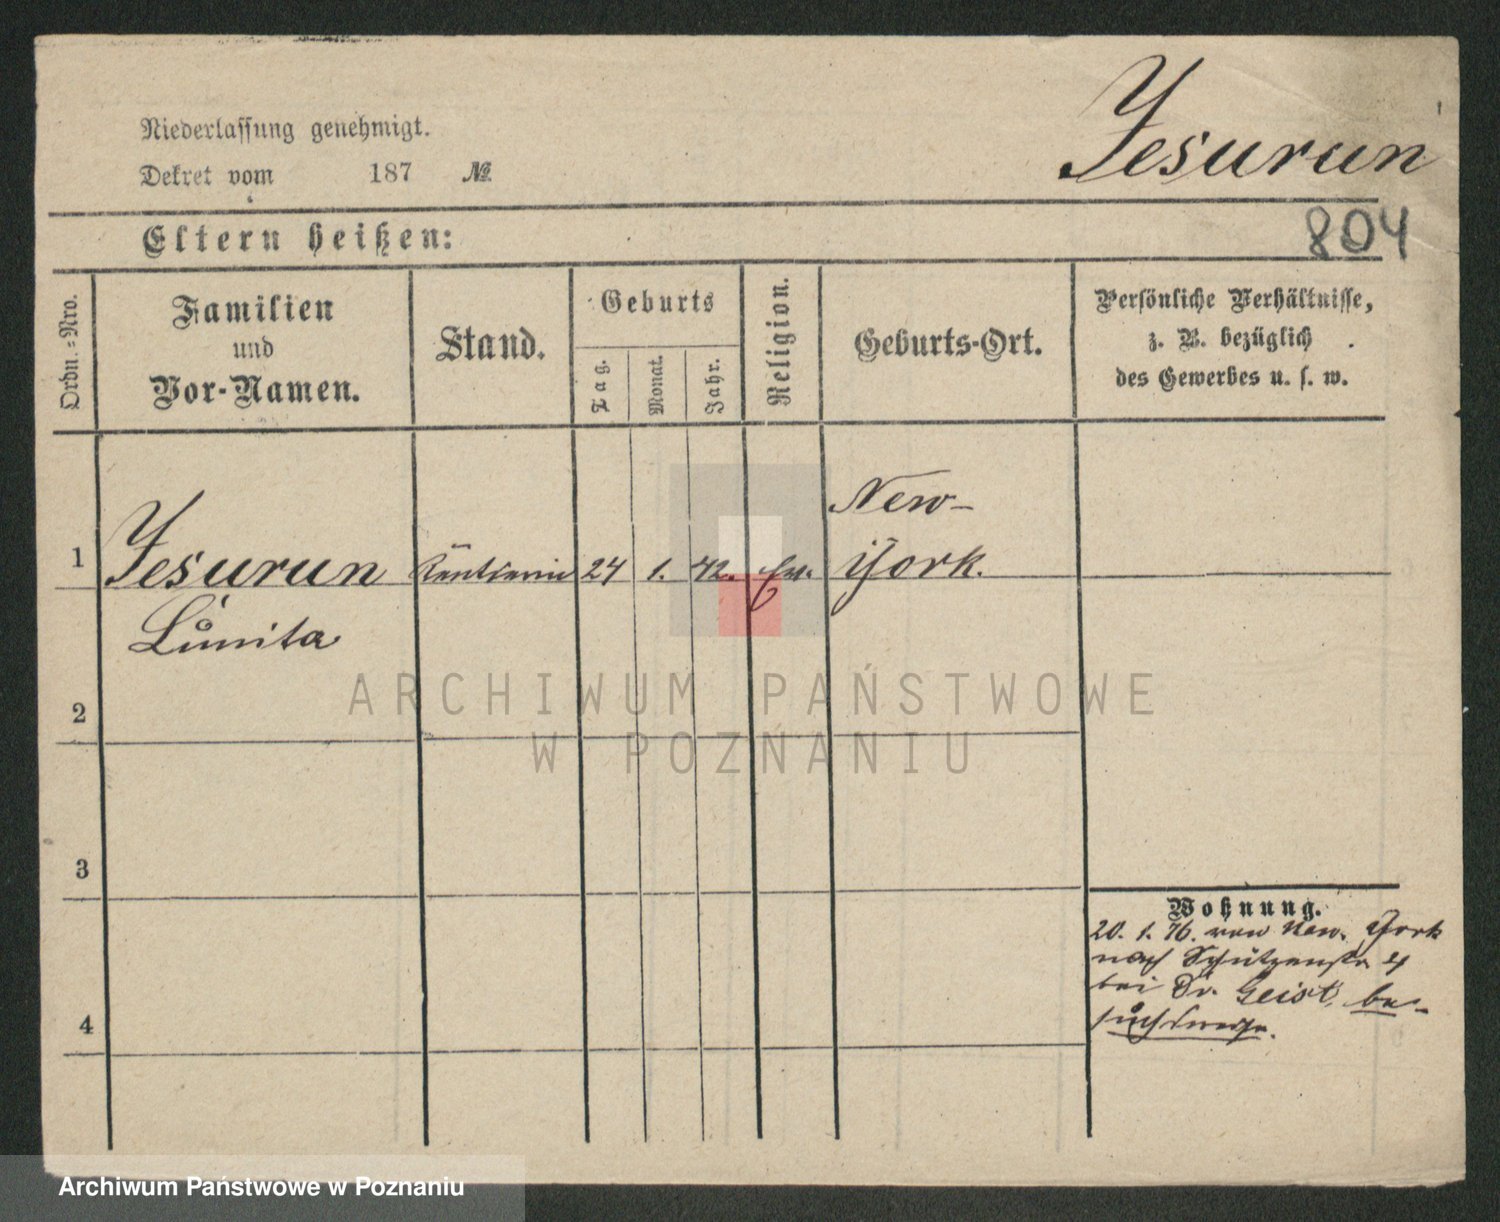 Niederlassung genehmigt.
Dekret vom 187 №
Jesurun
Eltern heißen:
804
Ordn.=Nro.
Familien
und
Vor-Namen.
Stand.
Geburts
Tag.
Monat.
Jahr.
Religion.
Geburts-Ort.
Persönliche Verhältnisse,
z. B. bezüglich
des Gewerbes u. s. w.
1
Jesurun
Lunita
24
1.
42.
New-
York.
2
3
4
Wohnung.
20. 1. 76. von New. York
nach Schützenstr 4
bei Dr. Geist, be-
suchsweise.
ARCHIWUM PAŃSTWOWE
W POZNANIU
Archiwum Państwowe w Poznaniu